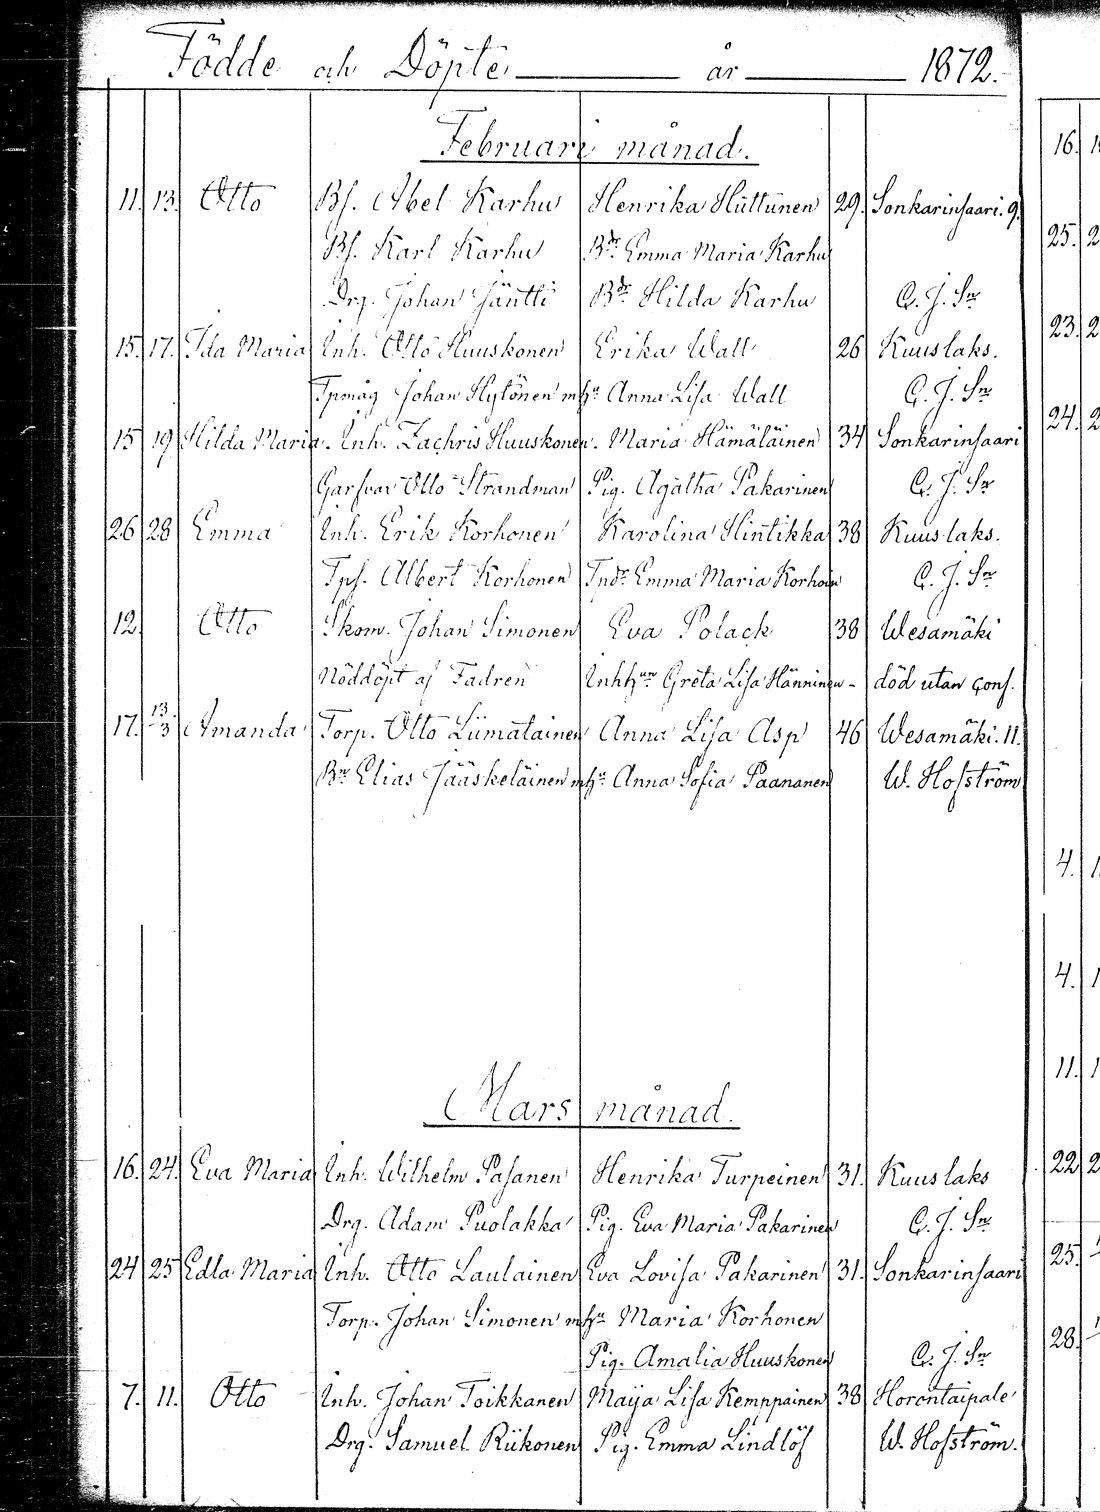 Födde och Döpte år 1872.
Februari månad.
11. 13. Otto Bs. Abel Karhu Henrika Huttunen 29. Sonkarinsaari. 9.
Bs. Karl Karhu Bdr Emma Maria Karhu
Drg. Johan Jäntti Bdr Hilda Karhu C. J. Sn
15. 17. Ida Maria Inh. Otto Huuskonen Erika Wall 26 Kuuslaks.
Tpmåg Johan Hytönen m hu Anna Lisa Wall C. J. Sn
15 19 Hilda Maria. Inh. Zachris Huuskonen. Maria Hämäläinen 34 Sonkarinsaari
Garfvar Otto Strandman Pig. Agatha Pakarinen C. J. Sn
26 28 Emma Inh. Erik Korhonen Karolina Hintikka 38 Kuuslaks.
Tps. Albert Korhonen Tpdr Emma Maria Korhoin C. J. Sn
12. Otto Skom. Johan Simonen Eva Polack 38 Wesamäki
Nöddöpt af Fadren Inhhun Greta Lisa Hänninen - död utan conf.
17. 13/3 Amanda Torp. Otto Liimatainen Anna Lisa Asp 46 Wesamäki. 11.
Bn Elias Jääskeläinen m hu Anna Sofia Paananen W. Hofström
Mars månad.
16. 24. Eva Maria Inh. Wilhelm Pasanen Henrika Turpeinen 31. Kuuslaks
Drg. Adam Puolakka Pig. Eva Maria Pakarinen C. J. Sn
24 25 Edla Maria Inh. Otto Laulainen Eva Lovisa Pakarinen 31. Sonkarinsaari
Torp. Johan Simonen m hu Maria Korhonen
Pig. Amalia Huuskonen C. J. Sn
7. 11. Otto Inh. Johan Toikkanen Maija Lisa Kemppainen 38 Horontaipale
Drg. Samuel Riikonen Pig. Emma Lindlöf W. Hofström.
16.
25. 2
23. 2
24. 2
4.
4. 1
11. 1
22 2
25.
28.